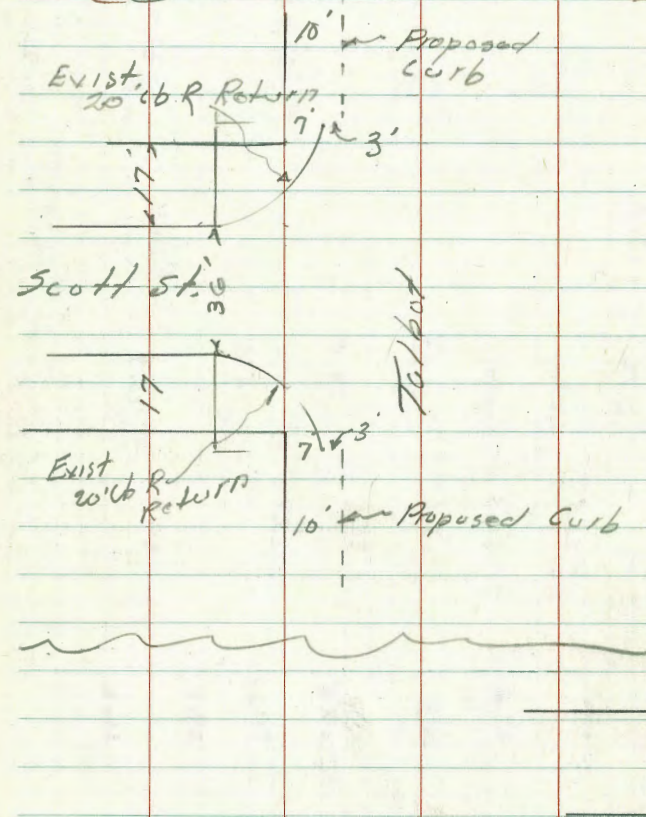 10'
Proposed
Curb
Exist.
20' cb R Return
7'
3'
17'
Scott St.
36'
Talbot
17
3'
7'
Exist
20' Cb R
Return
10'
Proposed Curb